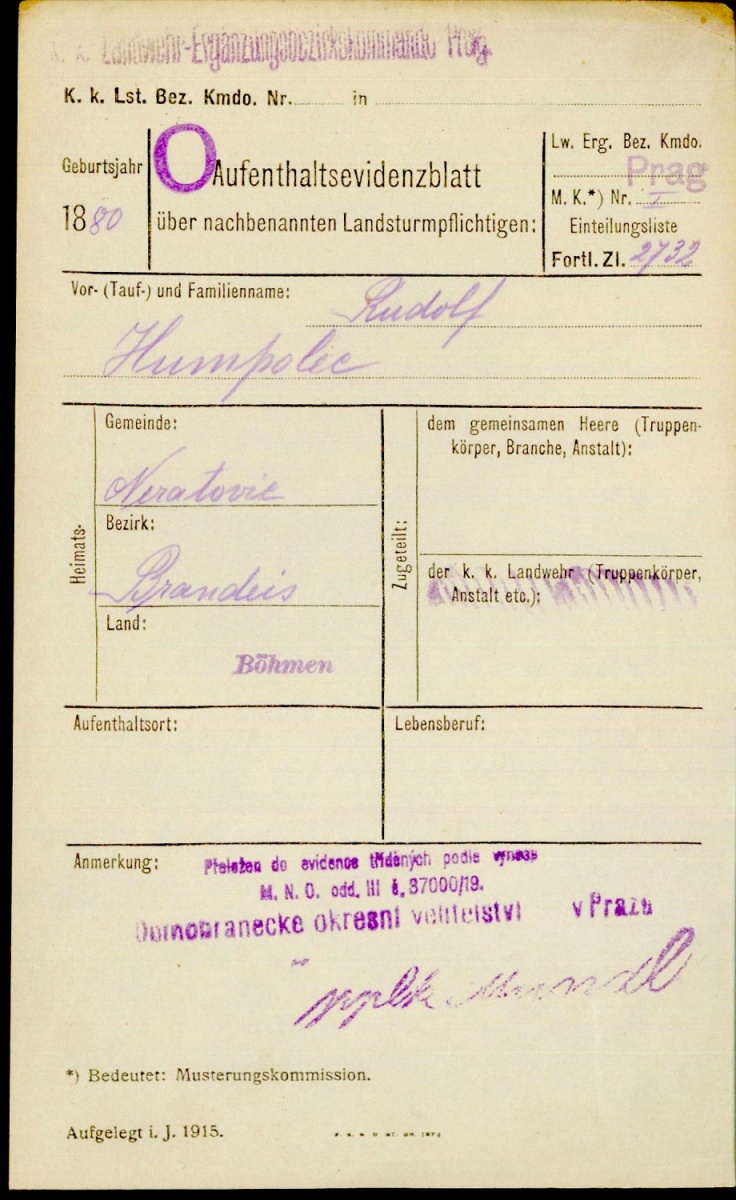 k. k. Landwehr-Ergänzungsbezirkskommando Prag.
K. k. Lst. Bez. Kmdo. Nr. in
Geburtsjahr
1880
O
Aufenthaltsevidenzblatt
über nachbenannten Landsturmpflichtigen:
Lw. Erg. Bez. Kmdo.
Prag
M. K.*) Nr. I
Einteilungsliste
Fortl. Zl. 2732
Vor- (Tauf-) und Familienname: Rudolf
Humpolec
Heimats-
Gemeinde:
Neratovic
Bezirk:
Brandeis
Land:
Böhmen
Zugeteilt:
dem gemeinsamen Heere (Truppen-
körper, Branche, Anstalt):
der k. k. Landwehr (Truppenkörper,
Anstalt etc.):
Aufenthaltsort:
Lebensberuf:
Anmerkung:
Přeložen do evidence tříděných podle výnosu
M. N. O. odd. III č. 37000/19.
Domobranecké okresní velitelství v Praze
*) Bedeutet: Musterungskommission.
Aufgelegt i. J. 1915.